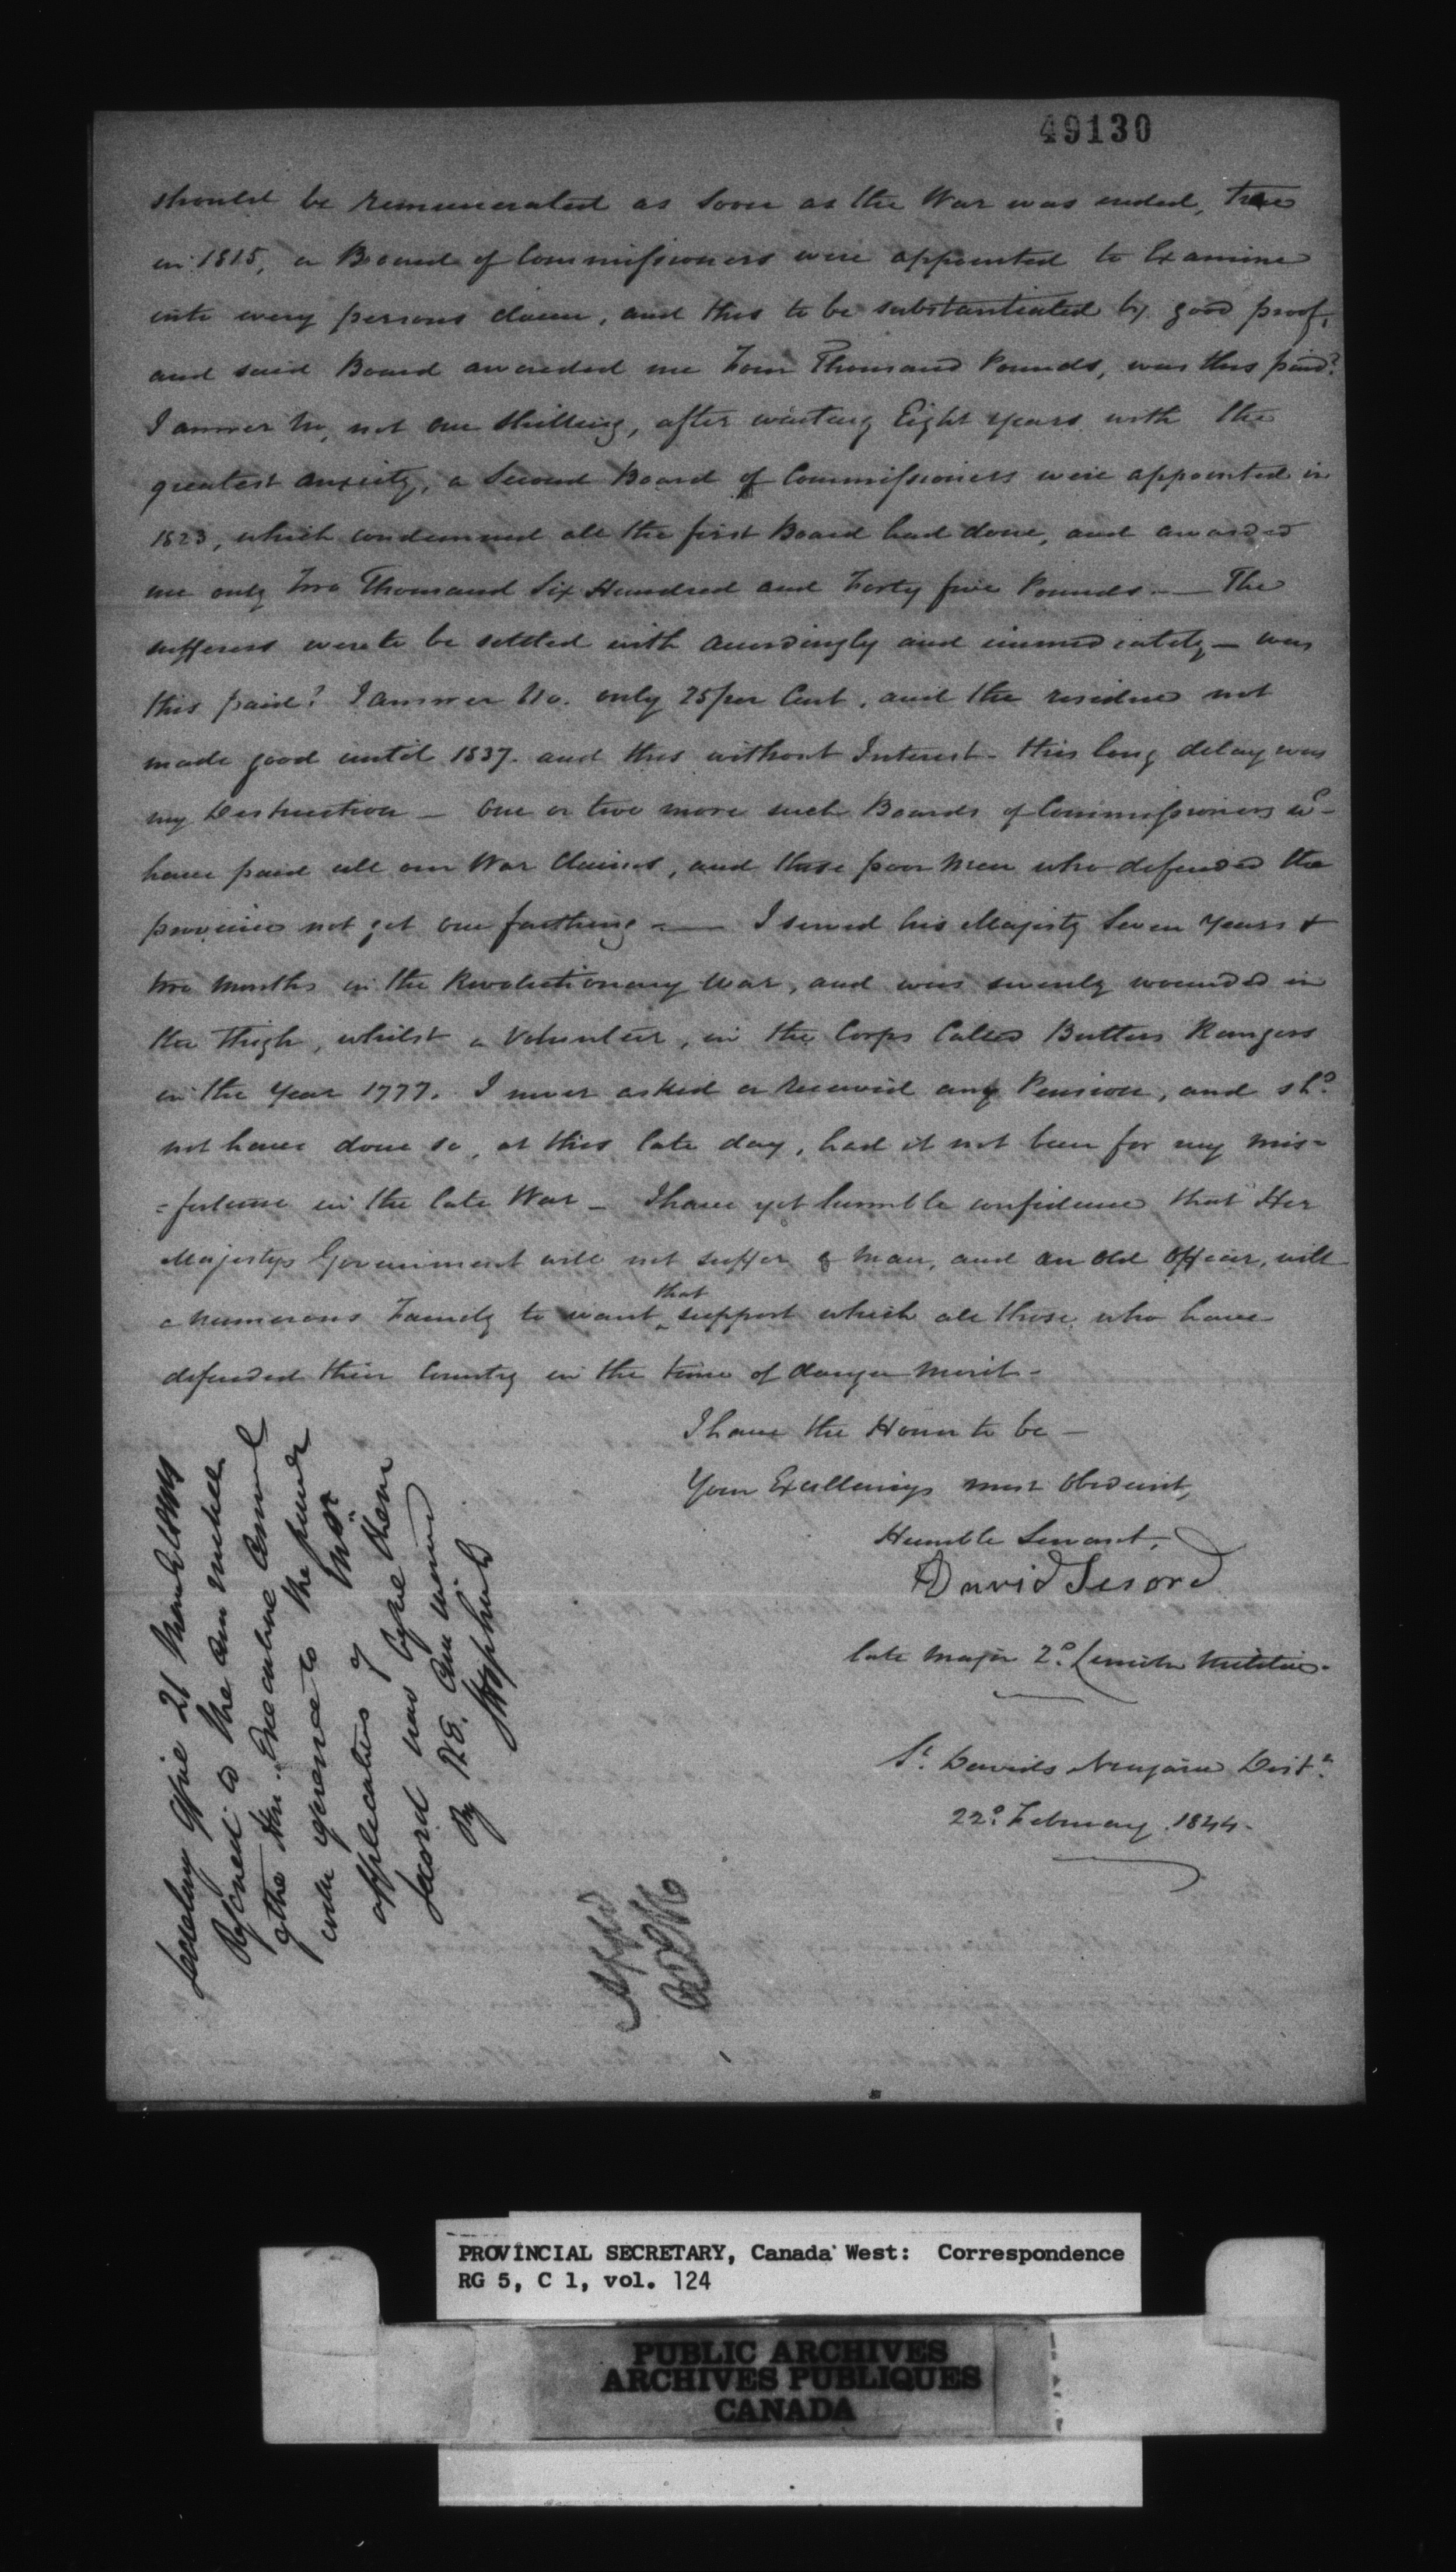 49130
should be remunerated as soon as the War was ended, true
in 1815, a Board of Commissioners were appointed to Examine
into every persons claim, and this to be substantiated by good proof,
and said Board awarded me Four Thousand Pounds, was this paid?
I answer No, not one shilling, after waiting Eight years with the
greatest anxiety, a Second Board of Commissioners were appointed in
1823, which condemned all the first Board had done, and awarded
me only Two Thousand Six Hundred and Forty five Pounds. — The
sufferers were to be settled with accordingly and immediately — was
this paid? I answer No. only 25 per Cent, and the residue not
made good until 1837. and this without Interest - this long delay was
my Destruction — One or two more such Boards of Commissioners wd
have paid all our War Claims, and those poor men who defended the
province not get one farthing — I served his Majesty Seven Years &
two months in the Revolutionary War, and was severely wounded in
the Thigh, whilst a Volunteer, in the Corps Called Butlers Rangers
in the Year 1777. I never asked or received any Pension, and shd
not have done so, at this late day, had it not been for my mis=
=fortune in the late War — I have yet humble confidence that Her
Majestys Government will not suffer a man, and an old Officer, with
a numerous Family to want that support which all those who have
defended their Country in the time of danger merit -
I have the Honor to be —
Your Excellencys most Obedient,
Humble Servant,
David Secord
late Major 2d Lincoln Militia.
St Davids Niagara Distt
22d February 1844.
Secretary Office 21 March
Referred to the
of the Hon: Executive Council
with reference to the
applications of Mr
Secord now before them
By H.E. Command
PROVINCIAL SECRETARY, Canada West: Correspondence
RG 5, C 1, vol. 124
PUBLIC ARCHIVES
ARCHIVES PUBLIQUES
CANADA